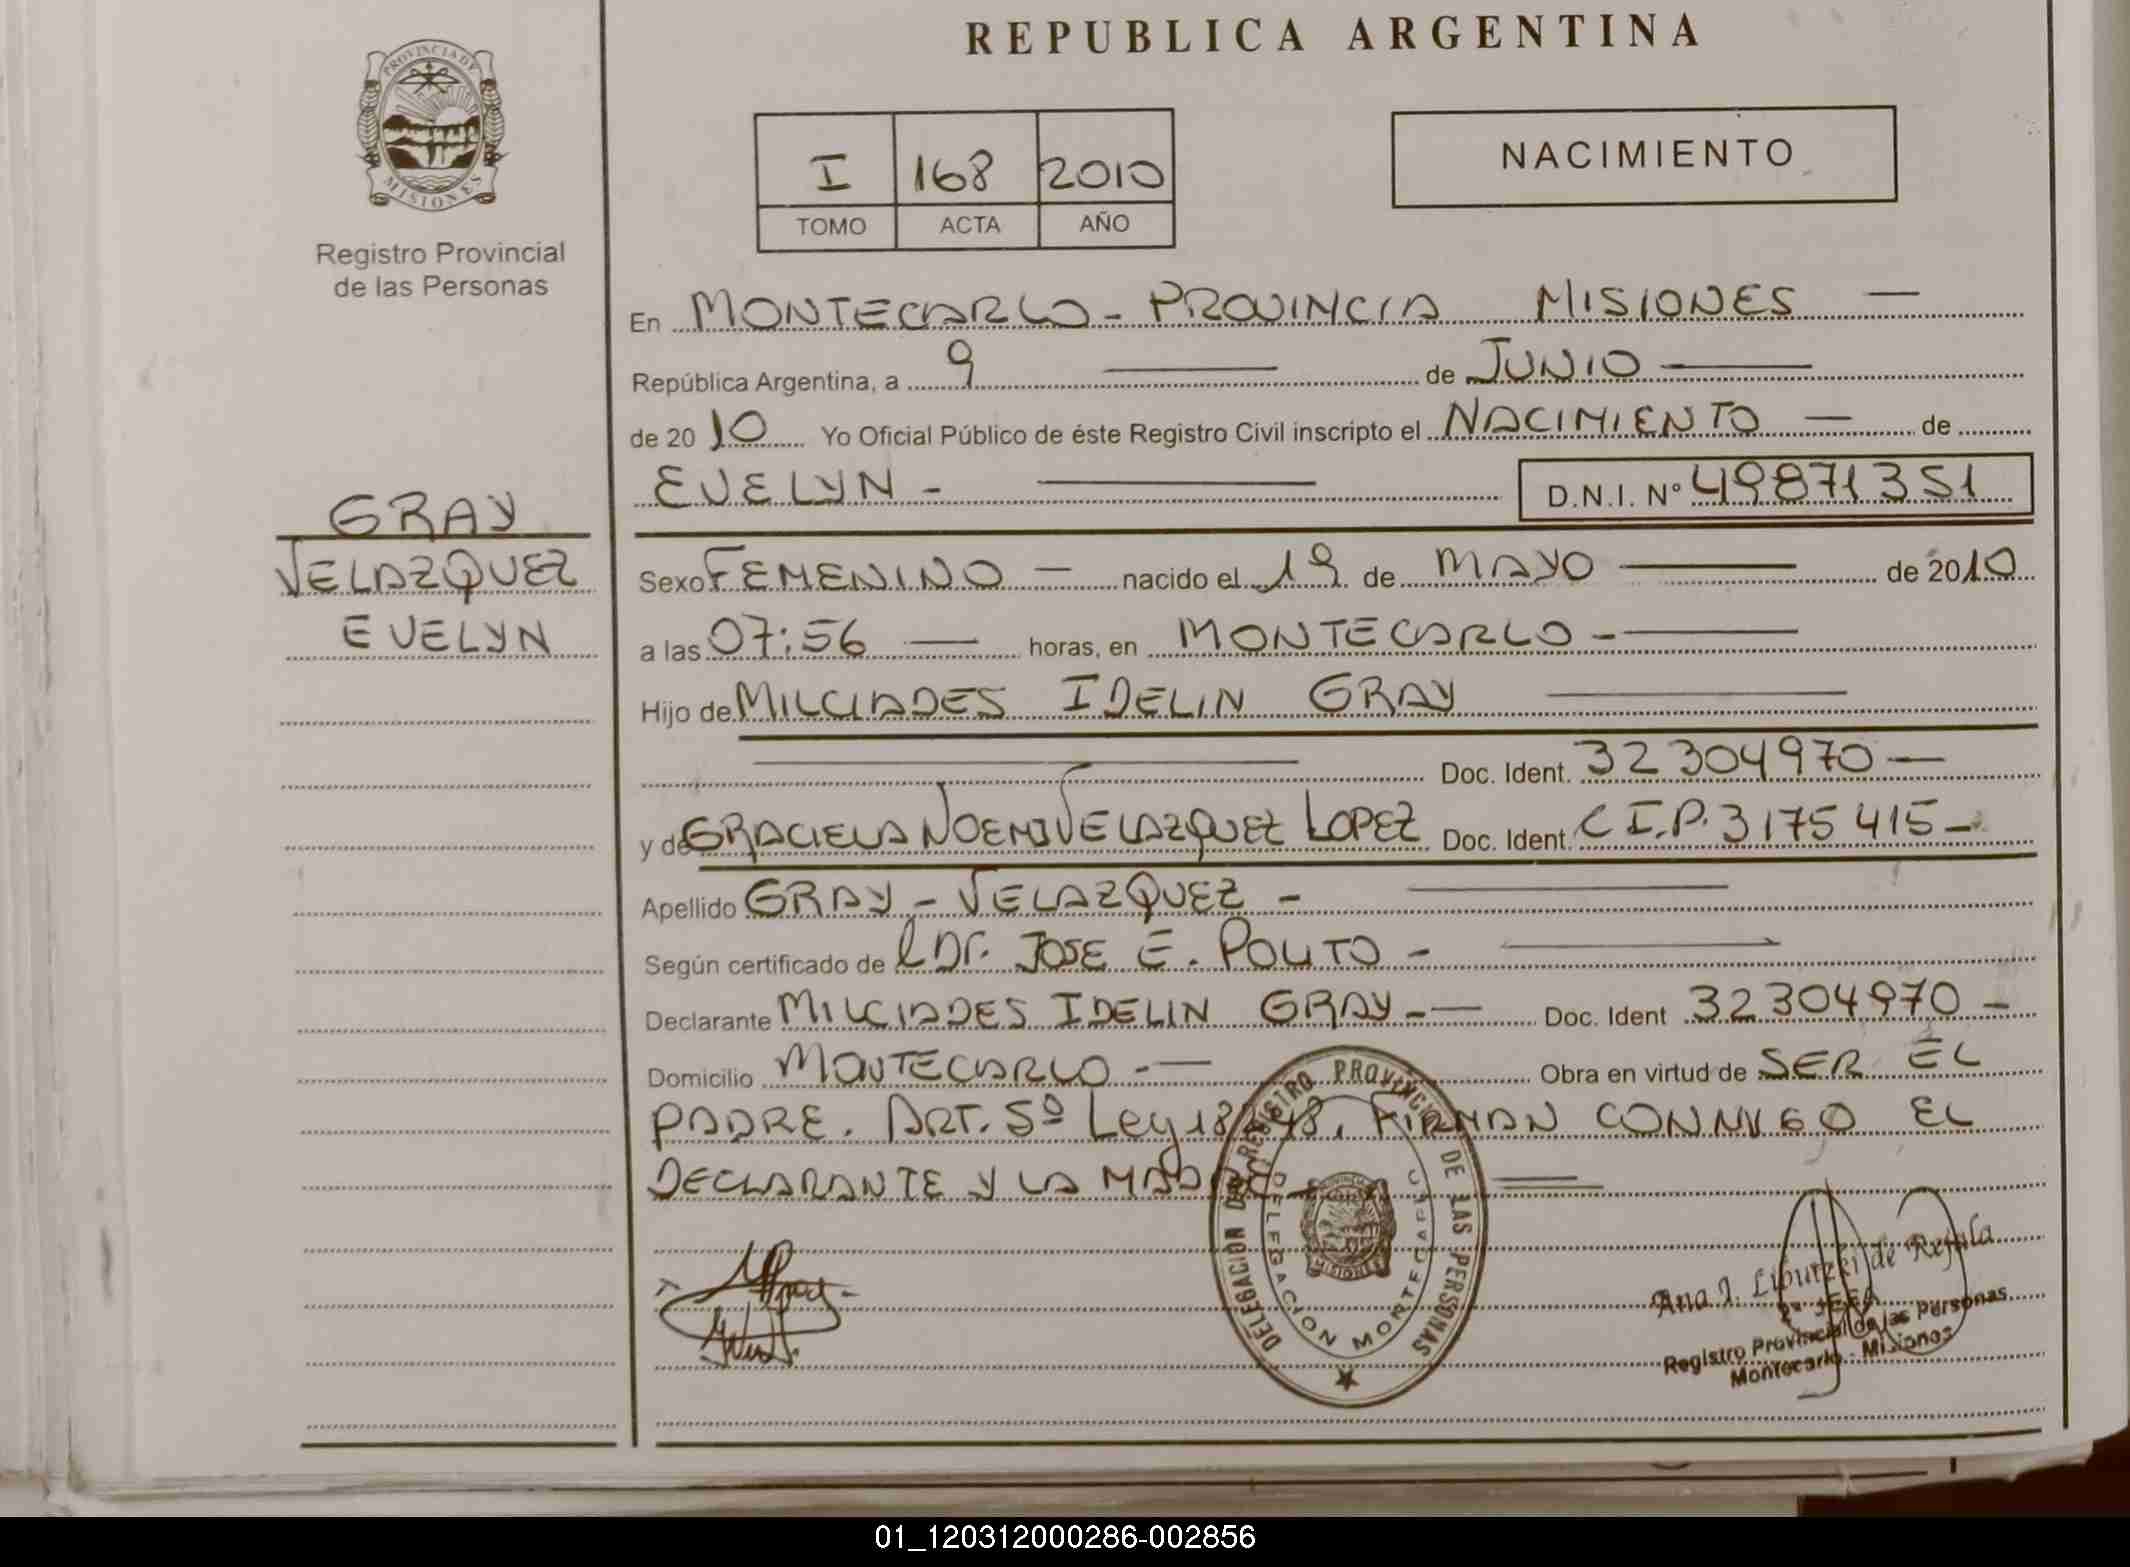 REPUBLICA ARGENTINA
PROVINCIA DE
MISIONES
Registro Provincial
de las Personas
I 168 2010
TOMO ACTA AÑO
NACIMIENTO
En MONTECARLO - PROVINCIA MISIONES —
República Argentina, a 9 — de JUNIO —
de 2010 Yo Oficial Público de éste Registro Civil inscripto el NACIMIENTO — de
EVELYN - — D.N.I. Nº 49871351
GRAY
VELAZQUEZ
EVELYN
Sexo FEMENINO — nacido el 19 de MAYO — de 2010
a las 07:56 — horas, en MONTECARLO - —
Hijo de MILCIADES IDELIN GRAY —
— Doc. Ident. 32304970 —
y de GRACIELA NOEMI VELAZQUEZ LOPEZ Doc. Ident. C.I.P. 3175415 -
Apellido GRAY - VELAZQUEZ - —
Según certificado de l Dr. JOSE E. POLITO - —
Declarante MILCIADES IDELIN GRAY - — Doc. Ident 32304970 -
Domicilio MONTECARLO - — Obra en virtud de SER EL
PADRE. ART. 5º Ley 18 48, FIRMAN CONMIGO EL
DECLARANTE Y LA
DELEGACION REGISTRO PROVINCIAL DE LAS PERSONAS
DELEGACION MONTECARLO
MISIONES
Ana I. de
Registro Provincial de las Personas
Montecarlo - Misiones
01_120312000286-002856